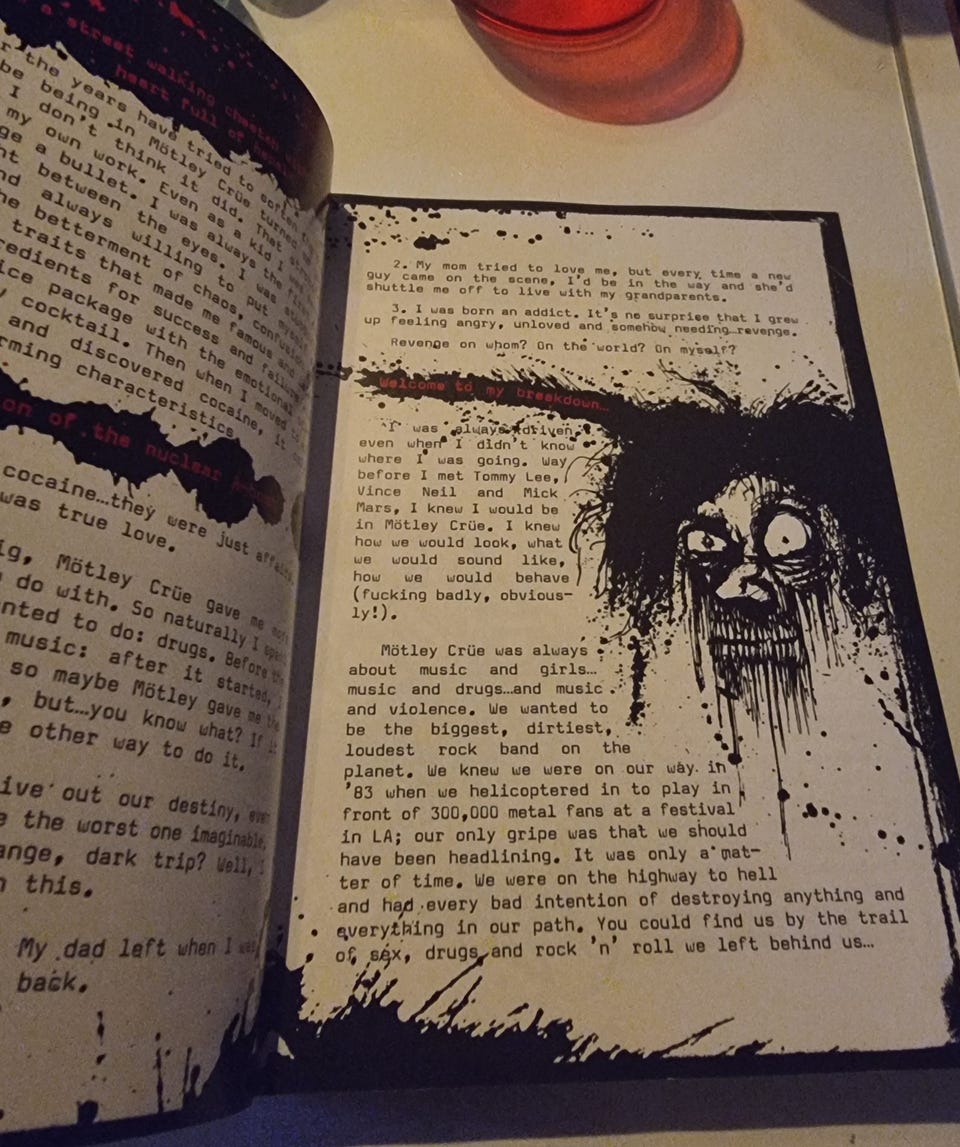 a street walking cheetah with
heart full of napalm
the years have tried to soften
be being in Mötley Crüe turned
I don't think it did. That
my own work. Even as a kid I
a bullet. I was always the first
between the eyes. I was
always willing to put myself
betterment of chaos, confusion
traits that made me famous and
for success and failure
package with the emotional
cocktail. Then when I moved to
and discovered cocaine, it
characteristics
of the nuclear
cocaine…they were just affairs.
was true love.
Mötley Crüe gave me
do with. So naturally I spent
to do: drugs. Before the
music: after it started,
so maybe Mötley gave me the
but…you know what? If it
other way to do it.
out our destiny, even
the worst one imaginable.
dark trip? Well, I
this.
My dad left when I was
back.
2. My mom tried to love me, but every time a new
guy came on the scene, I'd be in the way and she'd
shuttle me off to live with my grandparents.
3. I was born an addict. It's no surprise that I grew
up feeling angry, unloved and somehow needing…revenge.
Revenge on whom? On the world? On myself?
Welcome to my breakdown…
I was always driven,
even when I didn't know
where I was going. Way
before I met Tommy Lee,
Vince Neil and Mick
Mars, I knew I would be
in Mötley Crüe. I knew
how we would look, what
we would sound like,
how we would behave
(fucking badly, obvious-
ly!).
Mötley Crüe was always
about music and girls…
music and drugs…and music
and violence. We wanted to
be the biggest, dirtiest,
loudest rock band on the
planet. We knew we were on our way in
'83 when we helicoptered in to play in
front of 300,000 metal fans at a festival
in LA; our only gripe was that we should
have been headlining. It was only a mat-
ter of time. We were on the highway to hell
and had every bad intention of destroying anything and
everything in our path. You could find us by the trail
of sex, drugs and rock 'n' roll we left behind us…